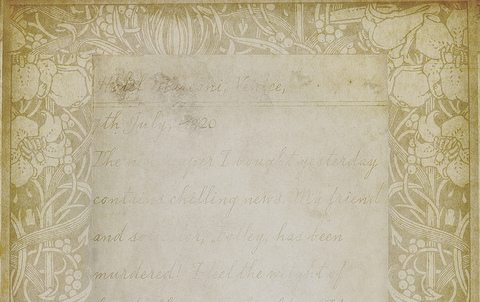 Hotel Venice,
7th July, 1920
The newspaper I bought yesterday
contains chilling news. My friend
and solicitor, Polley, has been
murdered! I feel the weight of